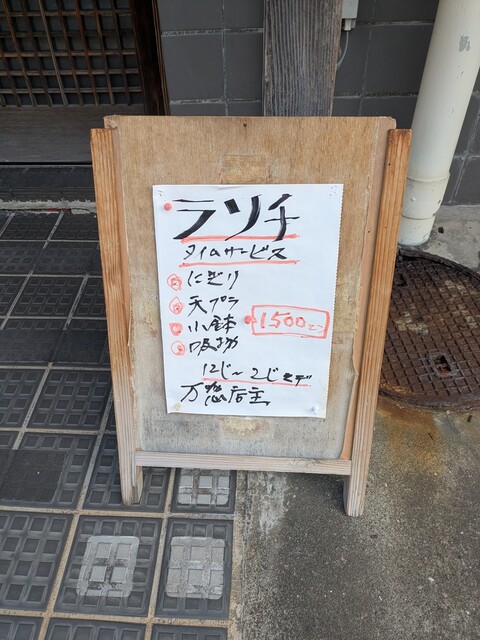 ランチ
タイムサービス
にぎり
天プラ
小鉢
吸物
1500でス
12じ〜2じまデ
店主